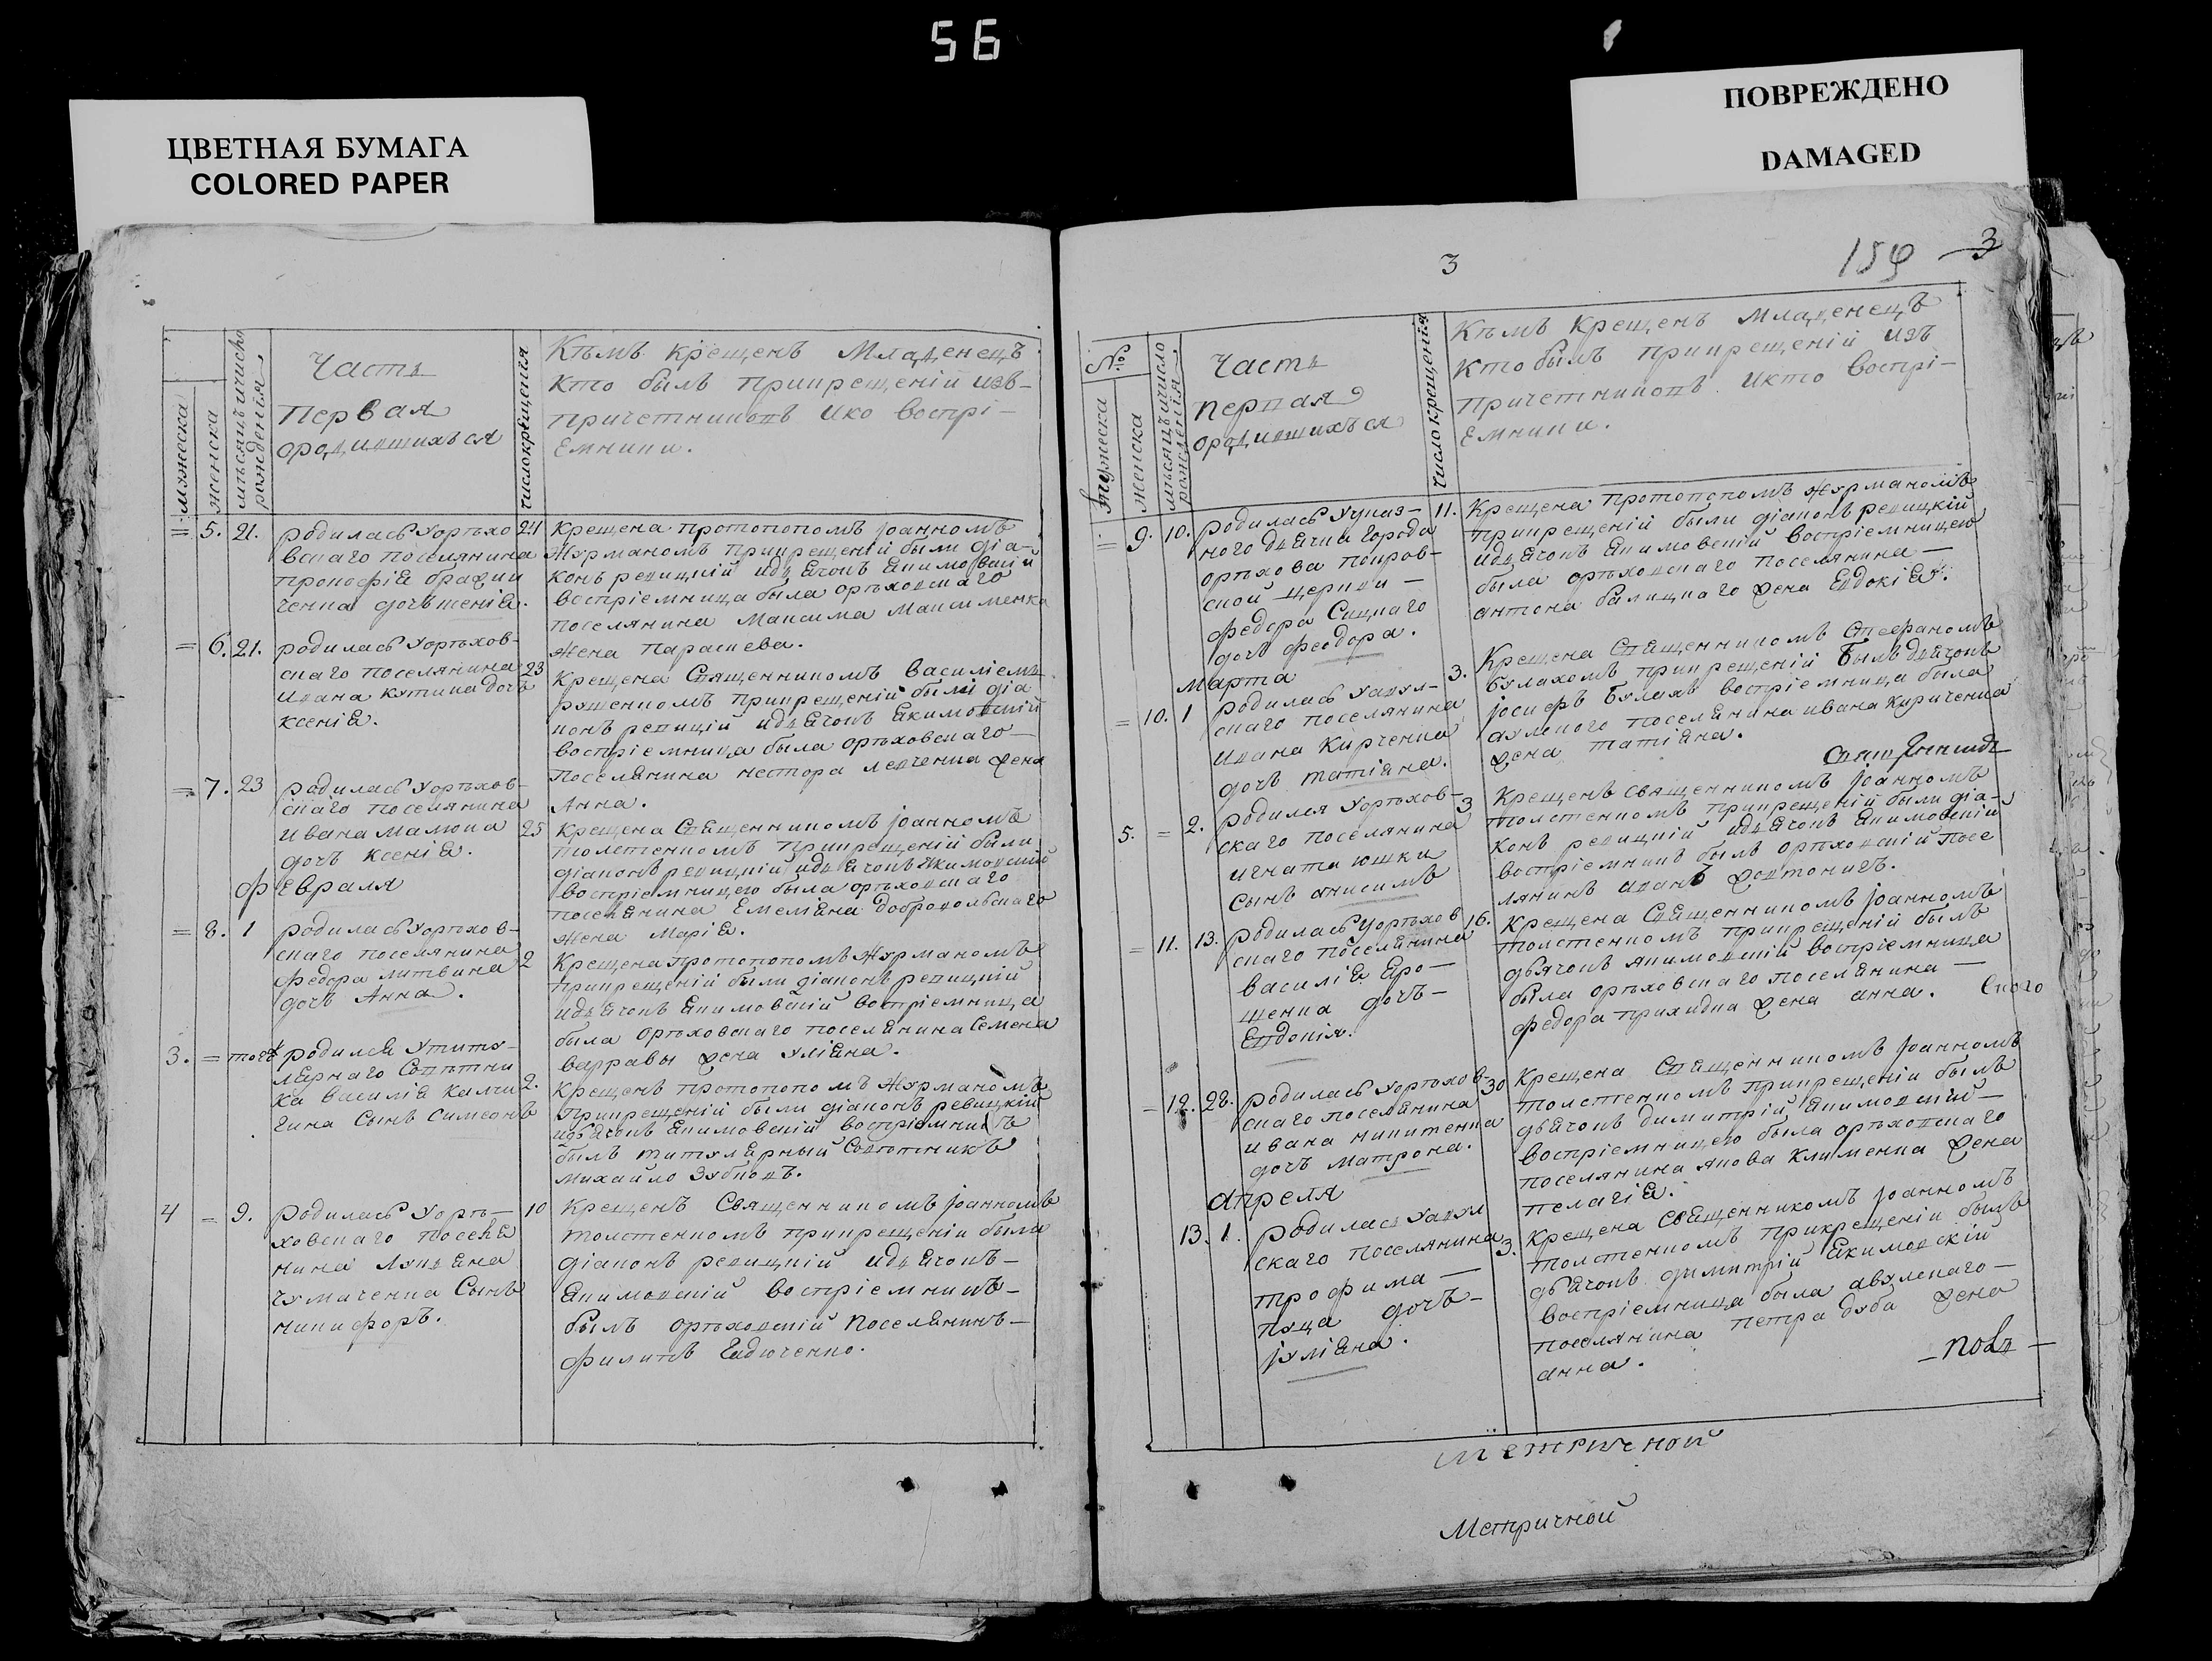 56
ЦВЕТНАЯ БУМАГА
COLORED PAPER
ПОВРЕЖДЕНО
DAMAGED
мужеска
женска
мѣсяцъ ичисло
рожденія
Часть
Первая
ородившихъся
число крещенія
Кѣмъ крещенъ Младенецъ
кто былъ прикрещеніи изъ-
причетниковъ ико воспрі-
емники.
= 5. 21.
родилась уорѣхо
вскаго поселянина
прокофія
дочь
21
крещена протопопомъ іоанномъ
Журманомъ прикрещеніи были діа-
конъ ревицкій идьячокъ якимовскій
воспріемница была орѣховскаго
поселянина Максима Максименка
жена Параскева.
= 6. 21.
родилась уорѣхов-
скаго поселянина
Ивана кутика дочь
ксенія.
23
крещена Священникомъ василіемъ
прикрещеніи были діа
конъ ревицкій идьячокъ якимовскій
воспріемница была орѣховскаго-
поселянина нестора левченка жена
Анна.
= 7. 23
родилась уорѣхов-
скаго поселянина
ивана мамона
дочь ксенія.
25
крещена Священникомъ іоанномъ
толстенкомъ прикрещеніи были
діаконъ ревицкій идьячокъ якимовскій
воспріемницею была орѣховскаго
поселянина Емеліяна добровольскаго
жена Марія.
февраля
= 8. 1
родилась уорѣхов-
скаго поселянина
федора литвина
дочь Анна.
2
крещена протопопомъ Журманомъ
прикрещеніи были діаконъ ревицкій
идьячокъ якимовскій воспріемница
была орѣховскаго поселянина Семена
варравы жена уліяна.
3. = тогожъ
родился утиту-
лярнаго Совѣтни
ка василія калми
гина Сынъ Симеонъ
2.
крещенъ протопопомъ Журманомъ
прикрещеніи были діаконъ ревицкій
идьячокъ якимовскій воспріемникъ
былъ титулярный Совѣтникъ
михайло Зубковъ.
4 = 9.
родилась уорѣ-
ховскаго поселя
нина лукіяна
чумаченка Сынъ
никифоръ.
10
крещенъ Священникомъ іоанномъ
толстенкомъ прикрещеніи были
діаконъ ревицкій идьячокъ-
якимовскій воспріемникъ-
былъ орѣховскій поселянинъ-
филипъ
3
159
3
№
мужеска
женска
мѣсяцъ ичисло
рожденія
Часть
первая
ородившихъся
число крещенія
Кѣмъ крещенъ Младенецъ
кто былъ прикрещеніи изъ
причетниковъ. Икто воспрі-
емники.
= 9. 10.
родилась указ-
ного дьячка города
орѣхова покров-
ской церкви-
федора Сицкаго
дочь феодора.
11.
крещена протопопомъ Журманомъ
прикрещеніи были діаконъ ревицкій
идьячокъ якимовскій воспріемницею
была орѣховскаго поселянина-
антона балицкаго жена Евдокія.
Марта
= 10. 1
родилась уавул-
скаго поселянина
ивана кирченка
дочь татіяна.
3.
крещена Священникомъ Стефаномъ
булахомъ прикрещеніи былъ дьячокъ
іосифъ булахъ воспріемница была
авулского поселянина ивана кириченка
жена татіяна.
5. = 2.
родился уорѣхов-
скаго поселянина
игната юшки
Сынъ анисимъ
3
крещенъ священникомъ іоанномъ
толстенкомъ прикрещеніи были діа-
конъ ревицкій идьячокъ якимовскій
воспріемникъ былъ орѣховскій посе
лянинъ иванъ жовтоногъ.
= 11. 13.
родилась уорѣхов
скаго поселянина
василія яро-
щенка дочь-
Евдокія.
16.
крещена Священникомъ іоанномъ
толстенкомъ прикрещеніи былъ
дьячокъ якимовскій воспріемница
была орѣховскаго поселянина-
федора прихидка жена анна.
= 12. 28.
родилась уорѣхов-
скаго поселянина
ивана никитенка
дочь матрона.
30
крещена Священникомъ іоанномъ
толстенкомъ прикрещеніи былъ
дьячокъ димитрій якимовскій-
воспріемницею была орѣховскаго
поселянина якова клименка жена
пелагія.
апреля
13. 1.
родилась уавул
скаго поселянина
трофима-
куца дочь-
іуліяна.
3.
крещена священникомъ іоанномъ
толстенкомъ прикрещеніи былъ
дьячокъ димитрій якимовскій
воспріемница была авулскаго-
поселянина петра дуба жена
анна.
метричной
Метричной